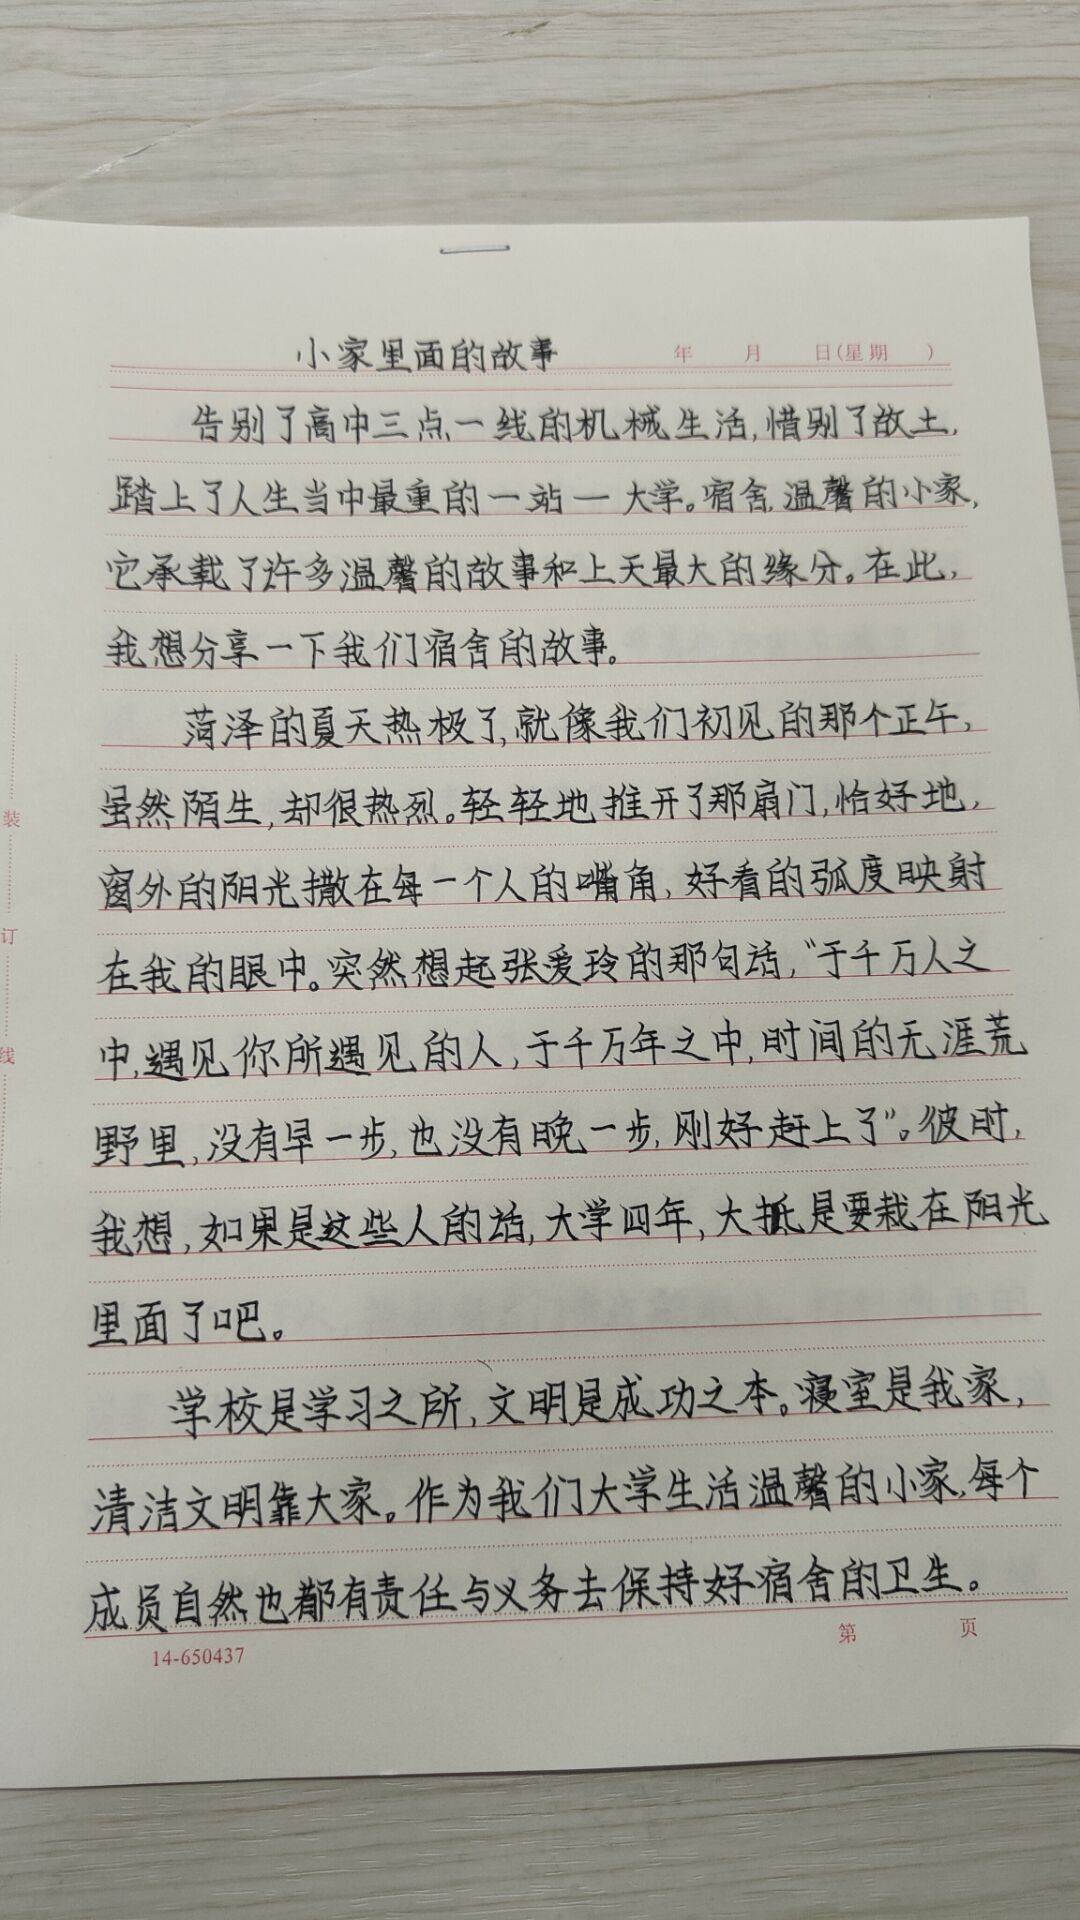 小家里面的故事 年 月 日(星期 )
告别了高中三点一线的机械生活,惜别了故土,
踏上了人生当中最重的一站一大学。宿舍,温馨的小家,
它承载了许多温馨的故事和上天最大的缘分。在此,
我想分享一下我们宿舍的故事。
菏泽的夏天热极了,就像我们初见的那个正午,
虽然陌生,却很热烈。轻轻地推开了那扇门,恰好地,
窗外的阳光撒在每一个人的嘴角,好看的弧度映射
在我的眼中。突然想起张爱玲的那句话,“于千万人之
中,遇见你所遇见的人,于千万年之中,时间的无涯荒
野里,没有早一步,也没有晚一步,刚好赶上了”。彼时,
我想,如果是这些人的话,大学四年,大抵是要栽在阳光
里面了吧。
学校是学习之所,文明是成功之本。寝室是我家,
清洁文明靠大家。作为我们大学生活温馨的小家,每个
成员自然也都有责任与义务去保持好宿舍的卫生。
14-650437 第 页
装
订
线